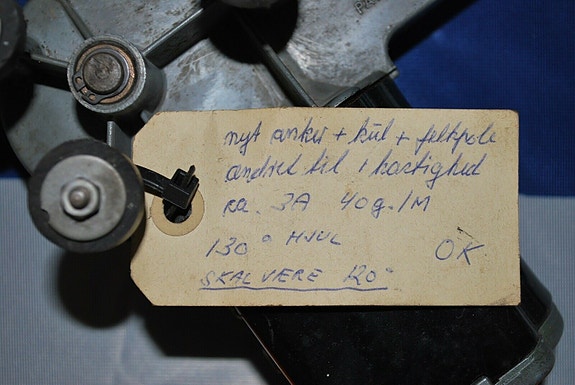 nyt anker + kul + feltpole
ændret til 1 hastighed
ca. 3A 40g./M
130° HJUL
OK
SKAL VÆRE 120°